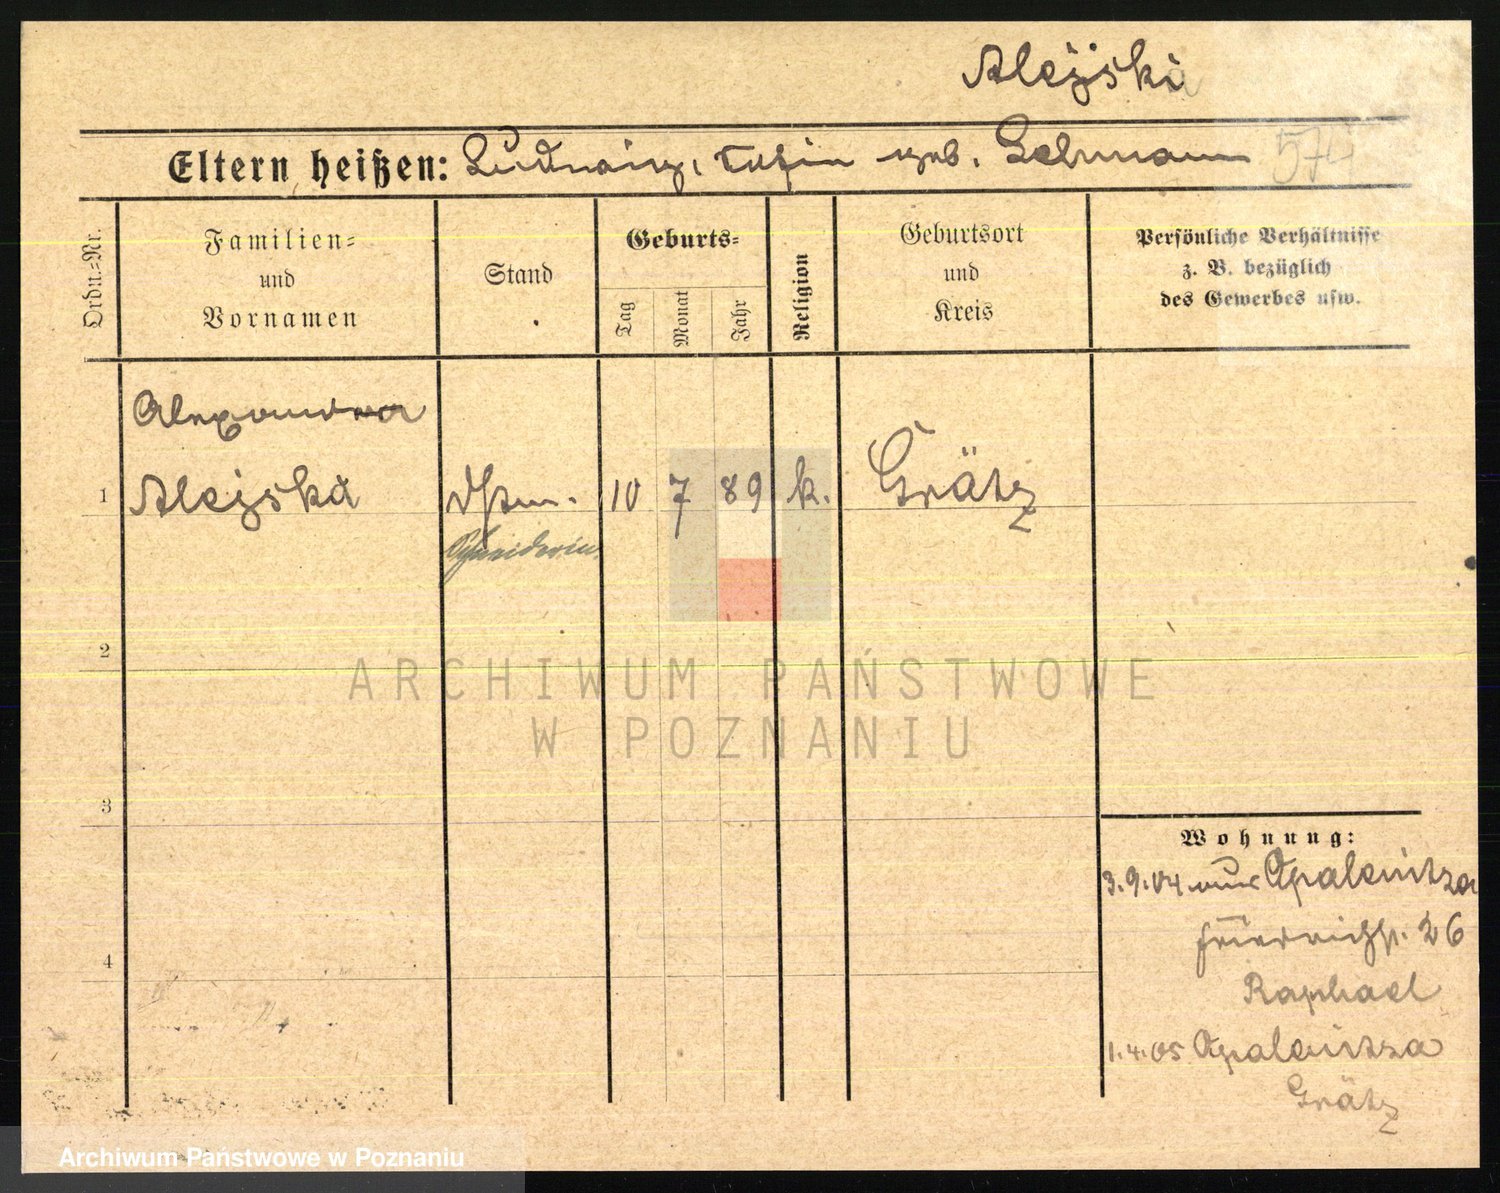 Alejski
Eltern heißen: Ludwig, geb. Lehmann 574
Ordn.=Nr.
Familien=
und
Vornamen
Stand
Geburts=
Tag
Monat
Jahr
Religion
Geburtsort
und
Kreis
Persönliche Verhältnisse
z. B. bezüglich
des Gewerbes usw.
Alexandra
1 Alejska 10 7 89 k. Grätz
Schneiderin
2
ARCHIWUM PAŃSTWOWE
W POZNANIU
3
Wohnung:
3.9.04 aus Opalenitza
Friedrichstr. 26
4
Raphael
1.4.05 Opalenitza
Grätz
Archiwum Państwowe w Poznaniu